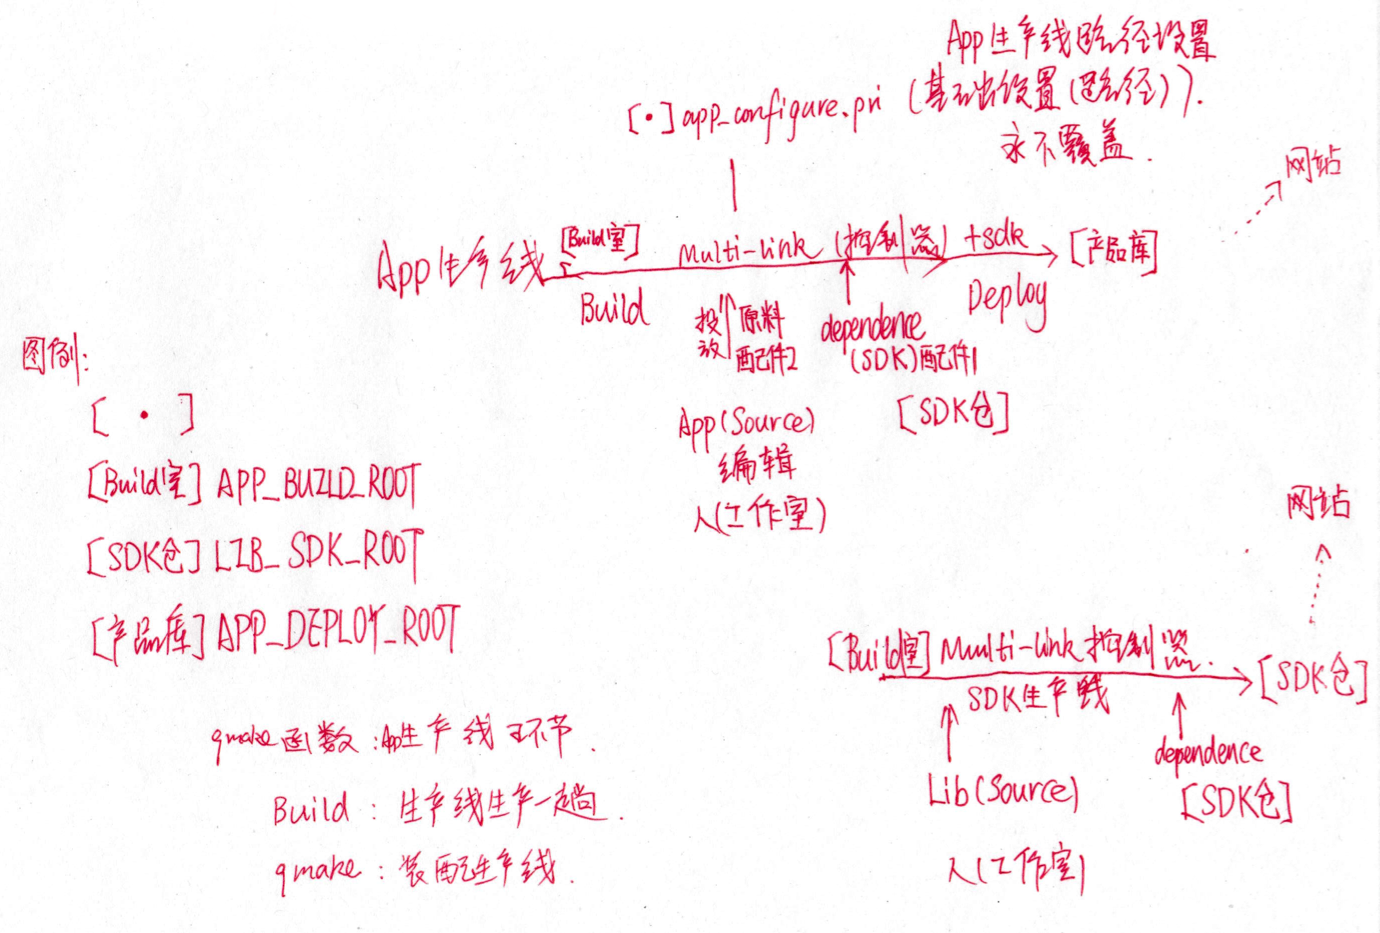 App生产线路径设置
[·]app_configure.pri (基础设置(路径)).
永不覆盖.
网站
App生产线 [Build室] Multi-link (控制器) +sdk [产品库]
Build
Deploy
投放 原料
配件2
dependence
(SDK)配件1
[SDK仓]
App(Source)
编辑
人(工作室)
图例:
[ · ]
[Build室] APP_BUILD_ROOT
[SDK仓] LIB_SDK_ROOT
[产品库] APP_DEPLOY_ROOT
网站
[Build室] Multi-link控制器. [SDK仓]
SDK生产线
Lib(Source)
人(工作室)
dependence
[SDK仓]
qmake函数:App生产线环节.
Build: 生产线生产一趟.
qmake: 装配生产线.